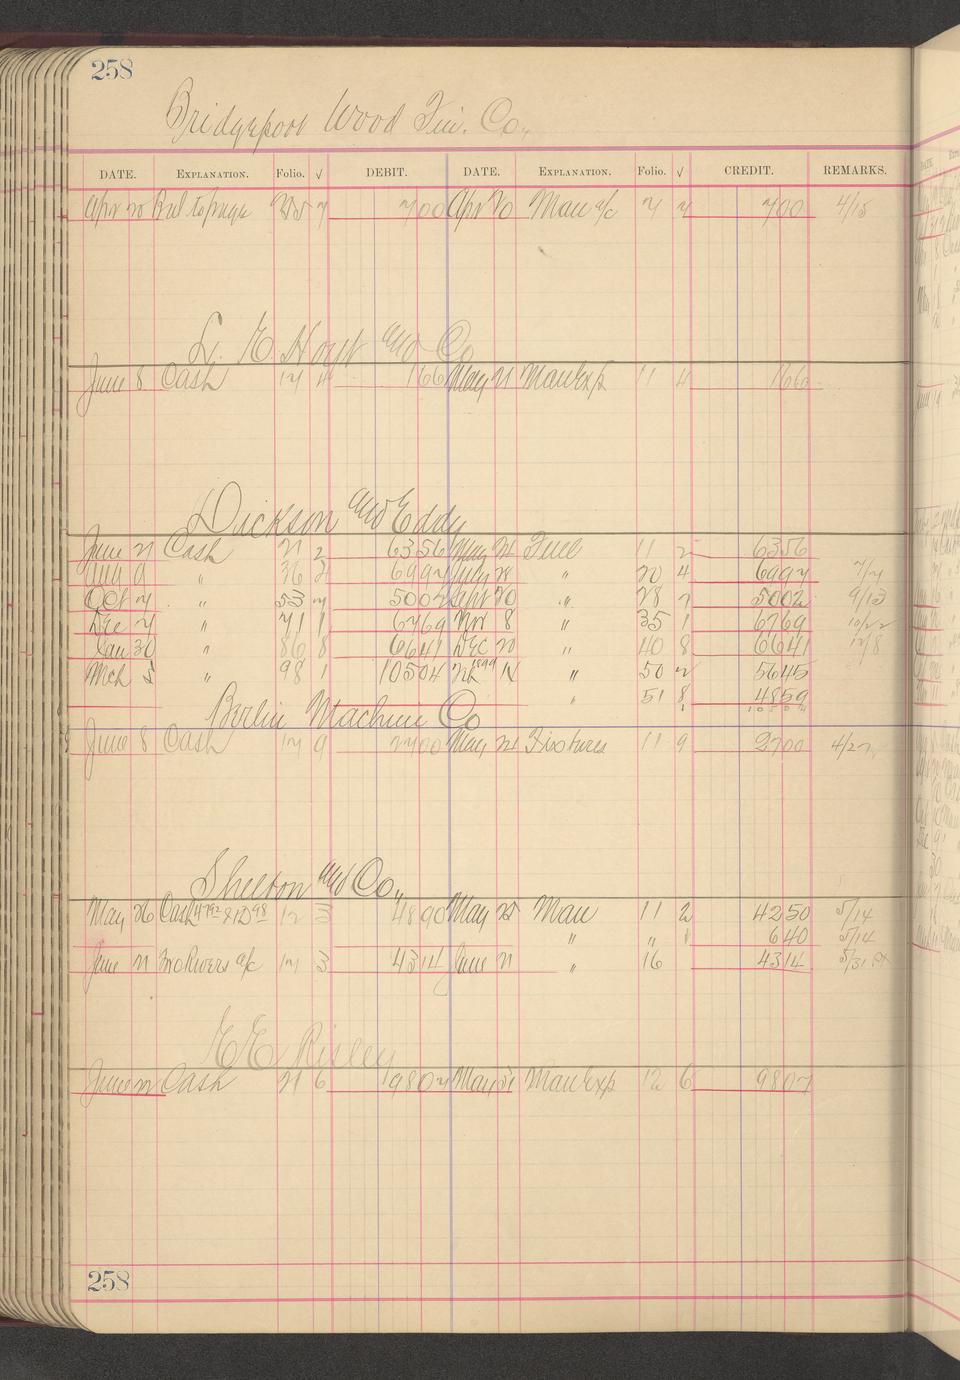 258
Bridgeport Wood Fin. Co.
DATE. EXPLANATION. Folio. √ DEBIT. DATE. EXPLANATION. Folio. √ CREDIT. REMARKS.
Apr 20 Bal to page 7 700 Apr 20 Man a/c 2 7 700 4/15
L. E. and Co
June 8 Cash 12 4 166 May 21 Man Exp 11 4 166
Dickson and Eddy
June 21 Cash 21 2 6356 May 21 Fuel 11 2 6356
Aug 9 " 36 4 6992 July 28 " 20 4 6992 7/2
Oct 4 " 53 7 5002 Sept 20 " 28 7 5002 9/13
Dec 2 " 71 1 6769 Nov 8 " 35 1 6769 10/22
Jan 30 " 86 8 6641 Dec 20 " 40 8 6641 12/8
Mch 2 " 98 1 10504 1899 " 50 2 5645
" 51 8 4859
10504
Berlin Machine Co
June 8 Cash 12 9 2700 May 21 Fixtures 11 9 2700 4/27
Shelton and Co.
May 26 Cash 47 92 & D 98 12 4890 May 25 Man 11 2 4250 5/14
" " 1 640 5/14
June 21 a/c 17 3 4314 June 21 " 16 4314 5/31
E E Risley
June 22 Cash 21 6 9807 May 31 Man Exp 12 6 9807
258